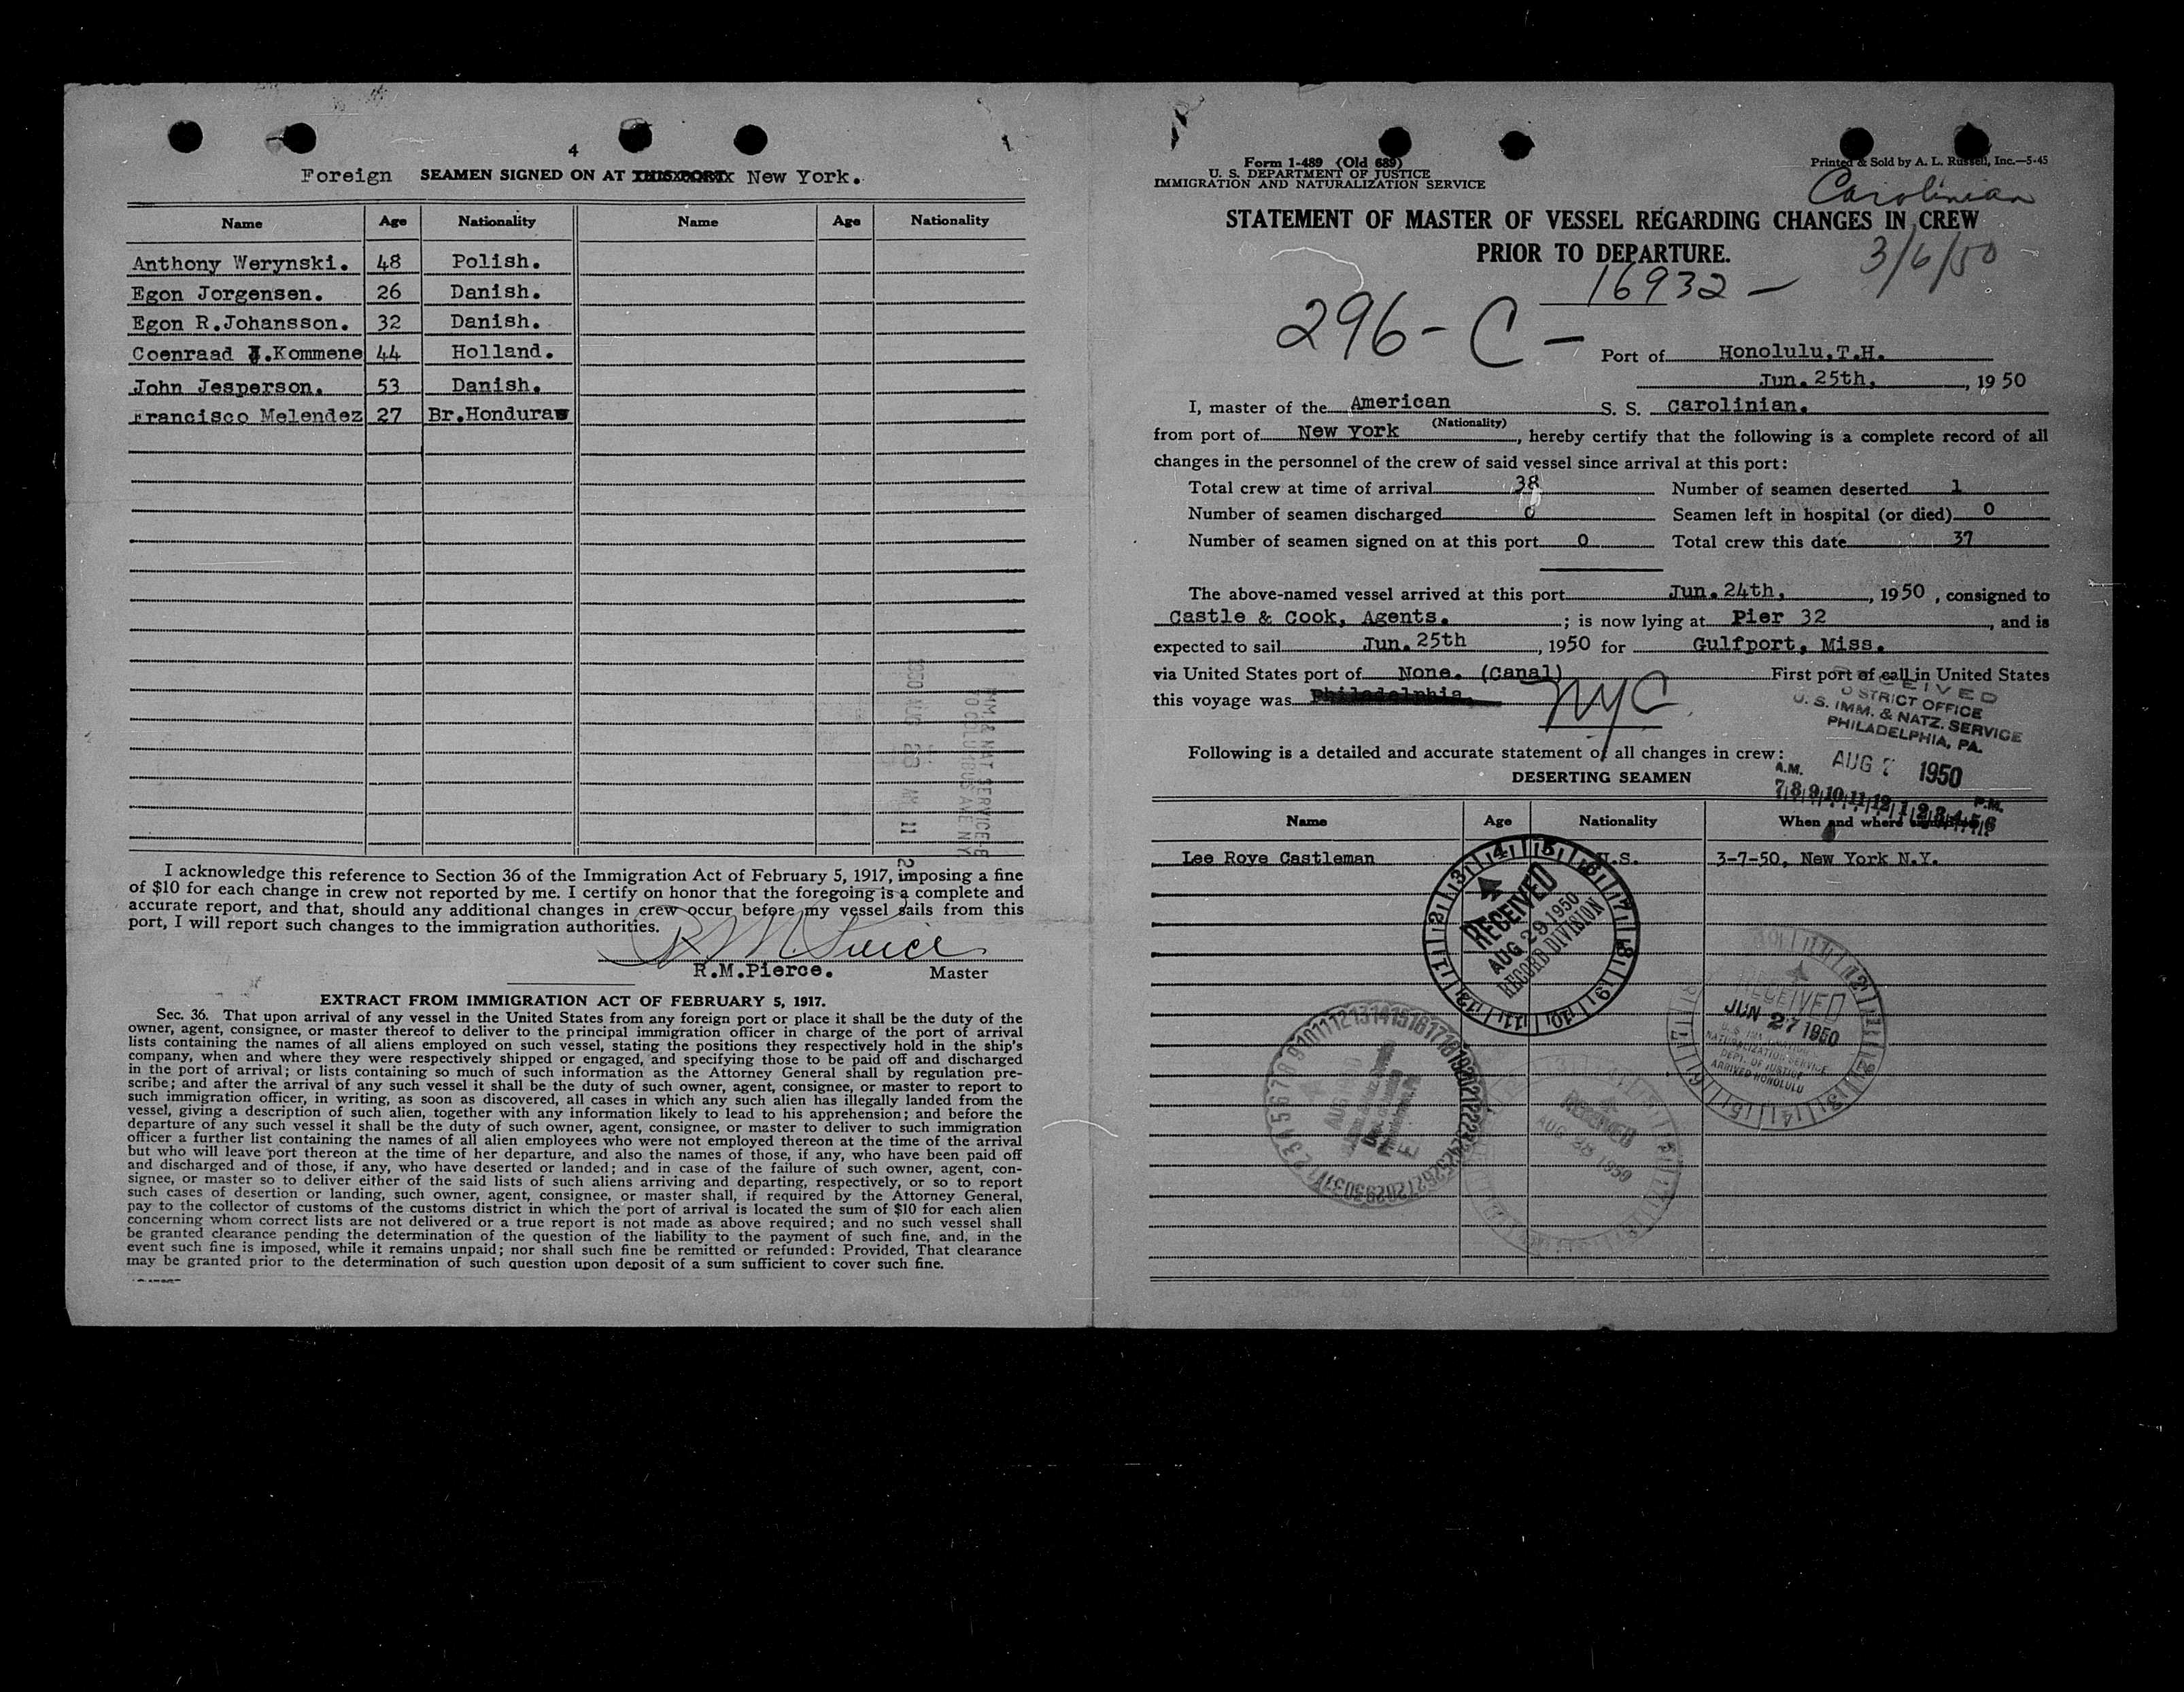 4
Foreign SEAMEN SIGNED ON AT THIS PORT New York.
Name Age Nationality Name Age Nationality
Anthony Werynski. 48 Polish.
Egon Jorgensen. 26 Danish.
Egon R.Johansson. 32 Danish.
Coenraad J.Kommene 44 Holland.
John Jesperson. 53 Danish.
Francisco Melendez 27 Br.Honduras
1950 AUG 28 AM 11 2
IMM & NAT SERVICE-E
70 COLUMBUS AVE NY
I acknowledge this reference to Section 36 of the Immigration Act of February 5, 1917, imposing a fine
of $10 for each change in crew not reported by me. I certify on honor that the foregoing is a complete and
accurate report, and that, should any additional changes in crew occur before my vessel sails from this
port, I will report such changes to the immigration authorities.
R M Pierce
R.M.Pierce. Master
EXTRACT FROM IMMIGRATION ACT OF FEBRUARY 5, 1917.
Sec. 36. That upon arrival of any vessel in the United States from any foreign port or place it shall be the duty of the
owner, agent, consignee, or master thereof to deliver to the principal immigration officer in charge of the port of arrival
lists containing the names of all aliens employed on such vessel, stating the positions they respectively hold in the ship's
company, when and where they were respectively shipped or engaged, and specifying those to be paid off and discharged
in the port of arrival; or lists containing so much of such information as the Attorney General shall by regulation pre-
scribe; and after the arrival of any such vessel it shall be the duty of such owner, agent, consignee, or master to report to
such immigration officer, in writing, as soon as discovered, all cases in which any such alien has illegally landed from the
vessel, giving a description of such alien, together with any information likely to lead to his apprehension; and before the
departure of any such vessel it shall be the duty of such owner, agent, consignee, or master to deliver to such immigration
officer a further list containing the names of all alien employees who were not employed thereon at the time of the arrival
but who will leave port thereon at the time of her departure, and also the names of those, if any, who have been paid off
and discharged and of those, if any, who have deserted or landed; and in case of the failure of such owner, agent, con-
signee, or master so to deliver either of the said lists of such aliens arriving and departing, respectively, or so to report
such cases of desertion or landing, such owner, agent, consignee, or master shall, if required by the Attorney General,
pay to the collector of customs of the customs district in which the port of arrival is located the sum of $10 for each alien
concerning whom correct lists are not delivered or a true report is not made as above required; and no such vessel shall
be granted clearance pending the determination of the question of the liability to the payment of such fine, and, in the
event such fine is imposed, while it remains unpaid; nor shall such fine be remitted or refunded: Provided, That clearance
may be granted prior to the determination of such question upon deposit of a sum sufficient to cover such fine.
Form 1-489 (Old 689)
U. S. DEPARTMENT OF JUSTICE
IMMIGRATION AND NATURALIZATION SERVICE
Printed & Sold by A. L. Russell, Inc.—5-45
Carolinian
STATEMENT OF MASTER OF VESSEL REGARDING CHANGES IN CREW
PRIOR TO DEPARTURE.
3/6/50
16932 -
296 - C -
Port of Honolulu,T.H.
Jun.25th, , 1950
I, master of the American S. S. Carolinian.
(Nationality)
from port of New York , hereby certify that the following is a complete record of all
changes in the personnel of the crew of said vessel since arrival at this port:
Total crew at time of arrival 38 Number of seamen deserted 1
Number of seamen discharged 0 Seamen left in hospital (or died) 0
Number of seamen signed on at this port 0 Total crew this date 37
The above-named vessel arrived at this port Jun.24th, , 1950 , consigned to
Castle & Cook, Agents. ; is now lying at Pier 32 , and is
expected to sail Jun.25th , 1950 for Gulfport, Miss.
via United States port of None. (Canal) First port of call in United States
this voyage was Philadelphia NYC
RECEIVED
DISTRICT OFFICE
U. S. IMM. & NATZ. SERVICE
PHILADELPHIA, PA.
AUG 7 1950
A.M. P.M.
7 8 9 10 11 12 1 2 3 4 5 6
Following is a detailed and accurate statement of all changes in crew:
DESERTING SEAMEN
Name Age Nationality When and where
Lee Roye Castleman U.S. 3-7-50, New York N.Y.
RECEIVED
AUG 29 1950
RECORD DIVISION
RECEIVED
JUN 27 1950
NATURALIZATION SERVICE
DEPT. OF JUSTICE
ARRIVED HONOLULU
RECEIVED
AUG 28 1950